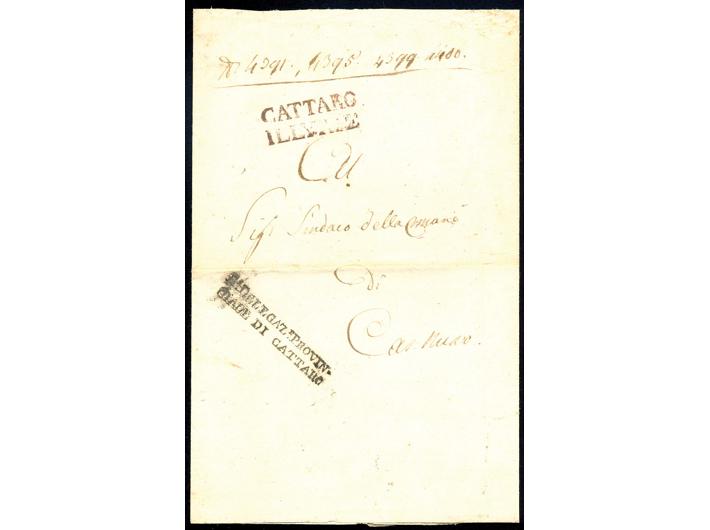 N 4391., 4395. 4399 4400.
CATTARO
ILLYRIE
Al
Sigr Sindaco della Comune
di
Cas Nuovo.
DELEGAZ.e PROVIN-
CIALE DI CATTARO